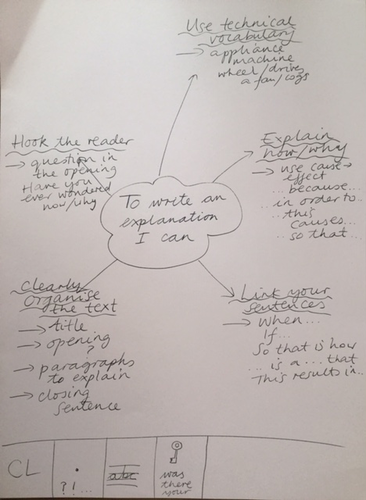 Use technical
vocabulary
→ appliance
machine
wheel/drives
a fan/cogs
Hook the reader
→ question in
the opening
Have you
ever wondered
how/why
Explain
how/why
→ use cause →
effect
... because...
in order to...
this
causes...
... so that...
To write an
explanation
I can
Clearly
organise
the text
→ title
→ opening
?
→ paragraphs
to explain
→ closing
sentence
Link your
sentences
→ When...
If...
So that is how
... is a ... that
This results in...
CL
.
? ! ...
abc
was
there
your